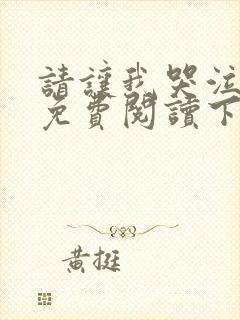 請讓我哭泣
免費閱讀下
黃挺